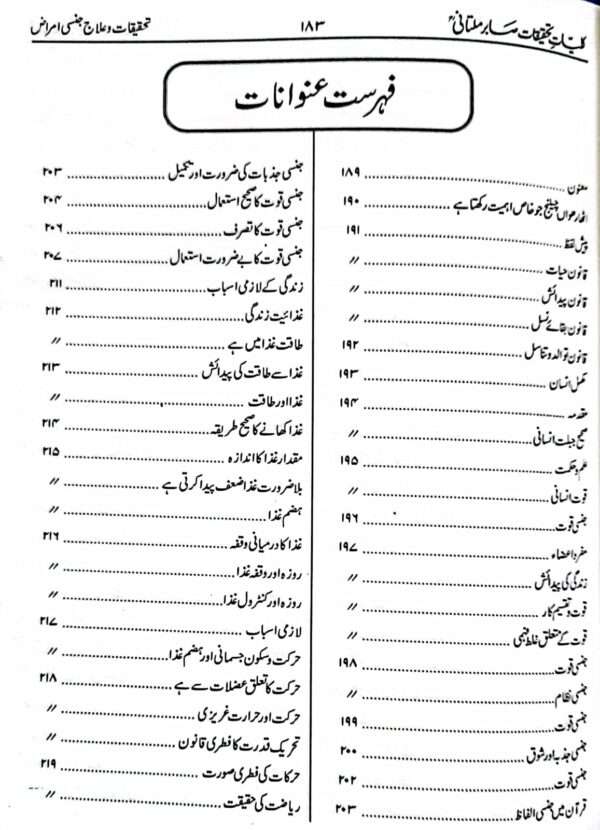 کلیات تحقیقات صابر ملتانیؒ
۱۸۳
تحقیقات و علاج جنسی امراض
فہرست عنوانات
معنون ۱۸۹
اٹھارھواں چیلنج جو خاص اہمیت رکھتا ہے ۱۹۰
پیش لفظ ۱۹۱
قانون حیات //
قانون پیدائش //
قانون بقائے نسل //
قانون توالد و تناسل ۱۹۲
مکمل انسان ۱۹۳
مقدمہ ۱۹۴
صحیح جبلت انسانی //
علم و حکمت ۱۹۵
قوت انسانی //
جنسی قوت ۱۹۶
مفرد اعضاء ۱۹۷
زندگی کی پیدائش //
قوت و تقسیم کار //
قوت کے متعلق غلط فہمی //
جنسی قوت ۱۹۸
جنسی نظام //
جنسی قوت ۱۹۹
جنسی جذبہ اور شوق ۲۰۰
جنسی قوت ۲۰۲
قرآن میں جنسی الفاظ ۲۰۳
جنسی جذبات کی ضرورت اور تکمیل ۲۰۳
جنسی قوت کا صحیح استعمال ۲۰۴
جنسی قوت کا تصرف ۲۰۶
جنسی قوت کا بے ضرورت استعمال ۲۰۷
زندگی کے لازمی اسباب ۲۱۱
غذائیت زندگی ۲۱۲
طاقت غذا میں ہے //
غذا سے طاقت کی پیدائش ۲۱۳
غذا اور طاقت //
غذا کھانے کا صحیح طریقہ ۲۱۴
مقدار غذا کا اندازہ ۲۱۵
بلا ضرورت غذا ضعف پیدا کرتی ہے //
ہضم غذا //
غذا کا درمیانی وقفہ ۲۱۶
روزہ اور وقفہ غذا //
روزہ اور کنٹرول غذا //
لازمی اسباب ۲۱۷
حرکت و سکون جسمانی اور ہضم غذا //
حرکت کا تعلق عضلات سے ہے ۲۱۸
حرکت اور حرارت غریزی //
تحریک قدرت کا فطری قانون //
حرکات کی فطری صورت ۲۱۹
ریاضت کی حقیقت //